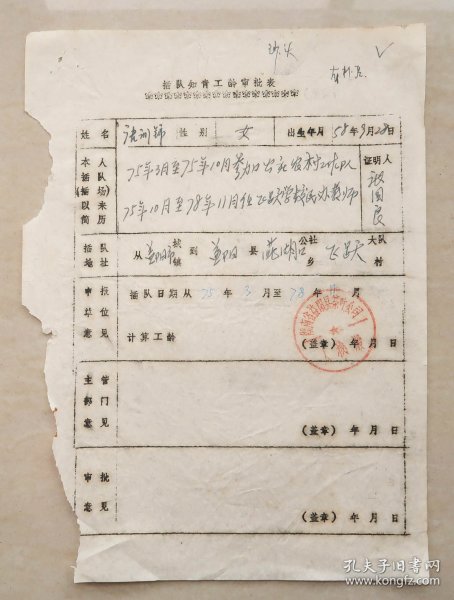 插队知青工龄审批表
姓名
性别 女 出生年月 58年9月28日
本人插队(插场)以来简历
75年3月至75年10月参加公社农村工作队
75年10月至78年11月任飞跃学校民办教师
证明人
国良
插队地址 从益阳市城镇到益阳县茈湖口公社乡飞跃大队村
申报单位意见
插队日期从75年3月至78年11月
计算工龄
(盖章) 年 月 日
主管部门意见
(盖章) 年 月 日
审批意见
(盖章) 年 月 日
孔夫子旧书网
www.kongfz.com